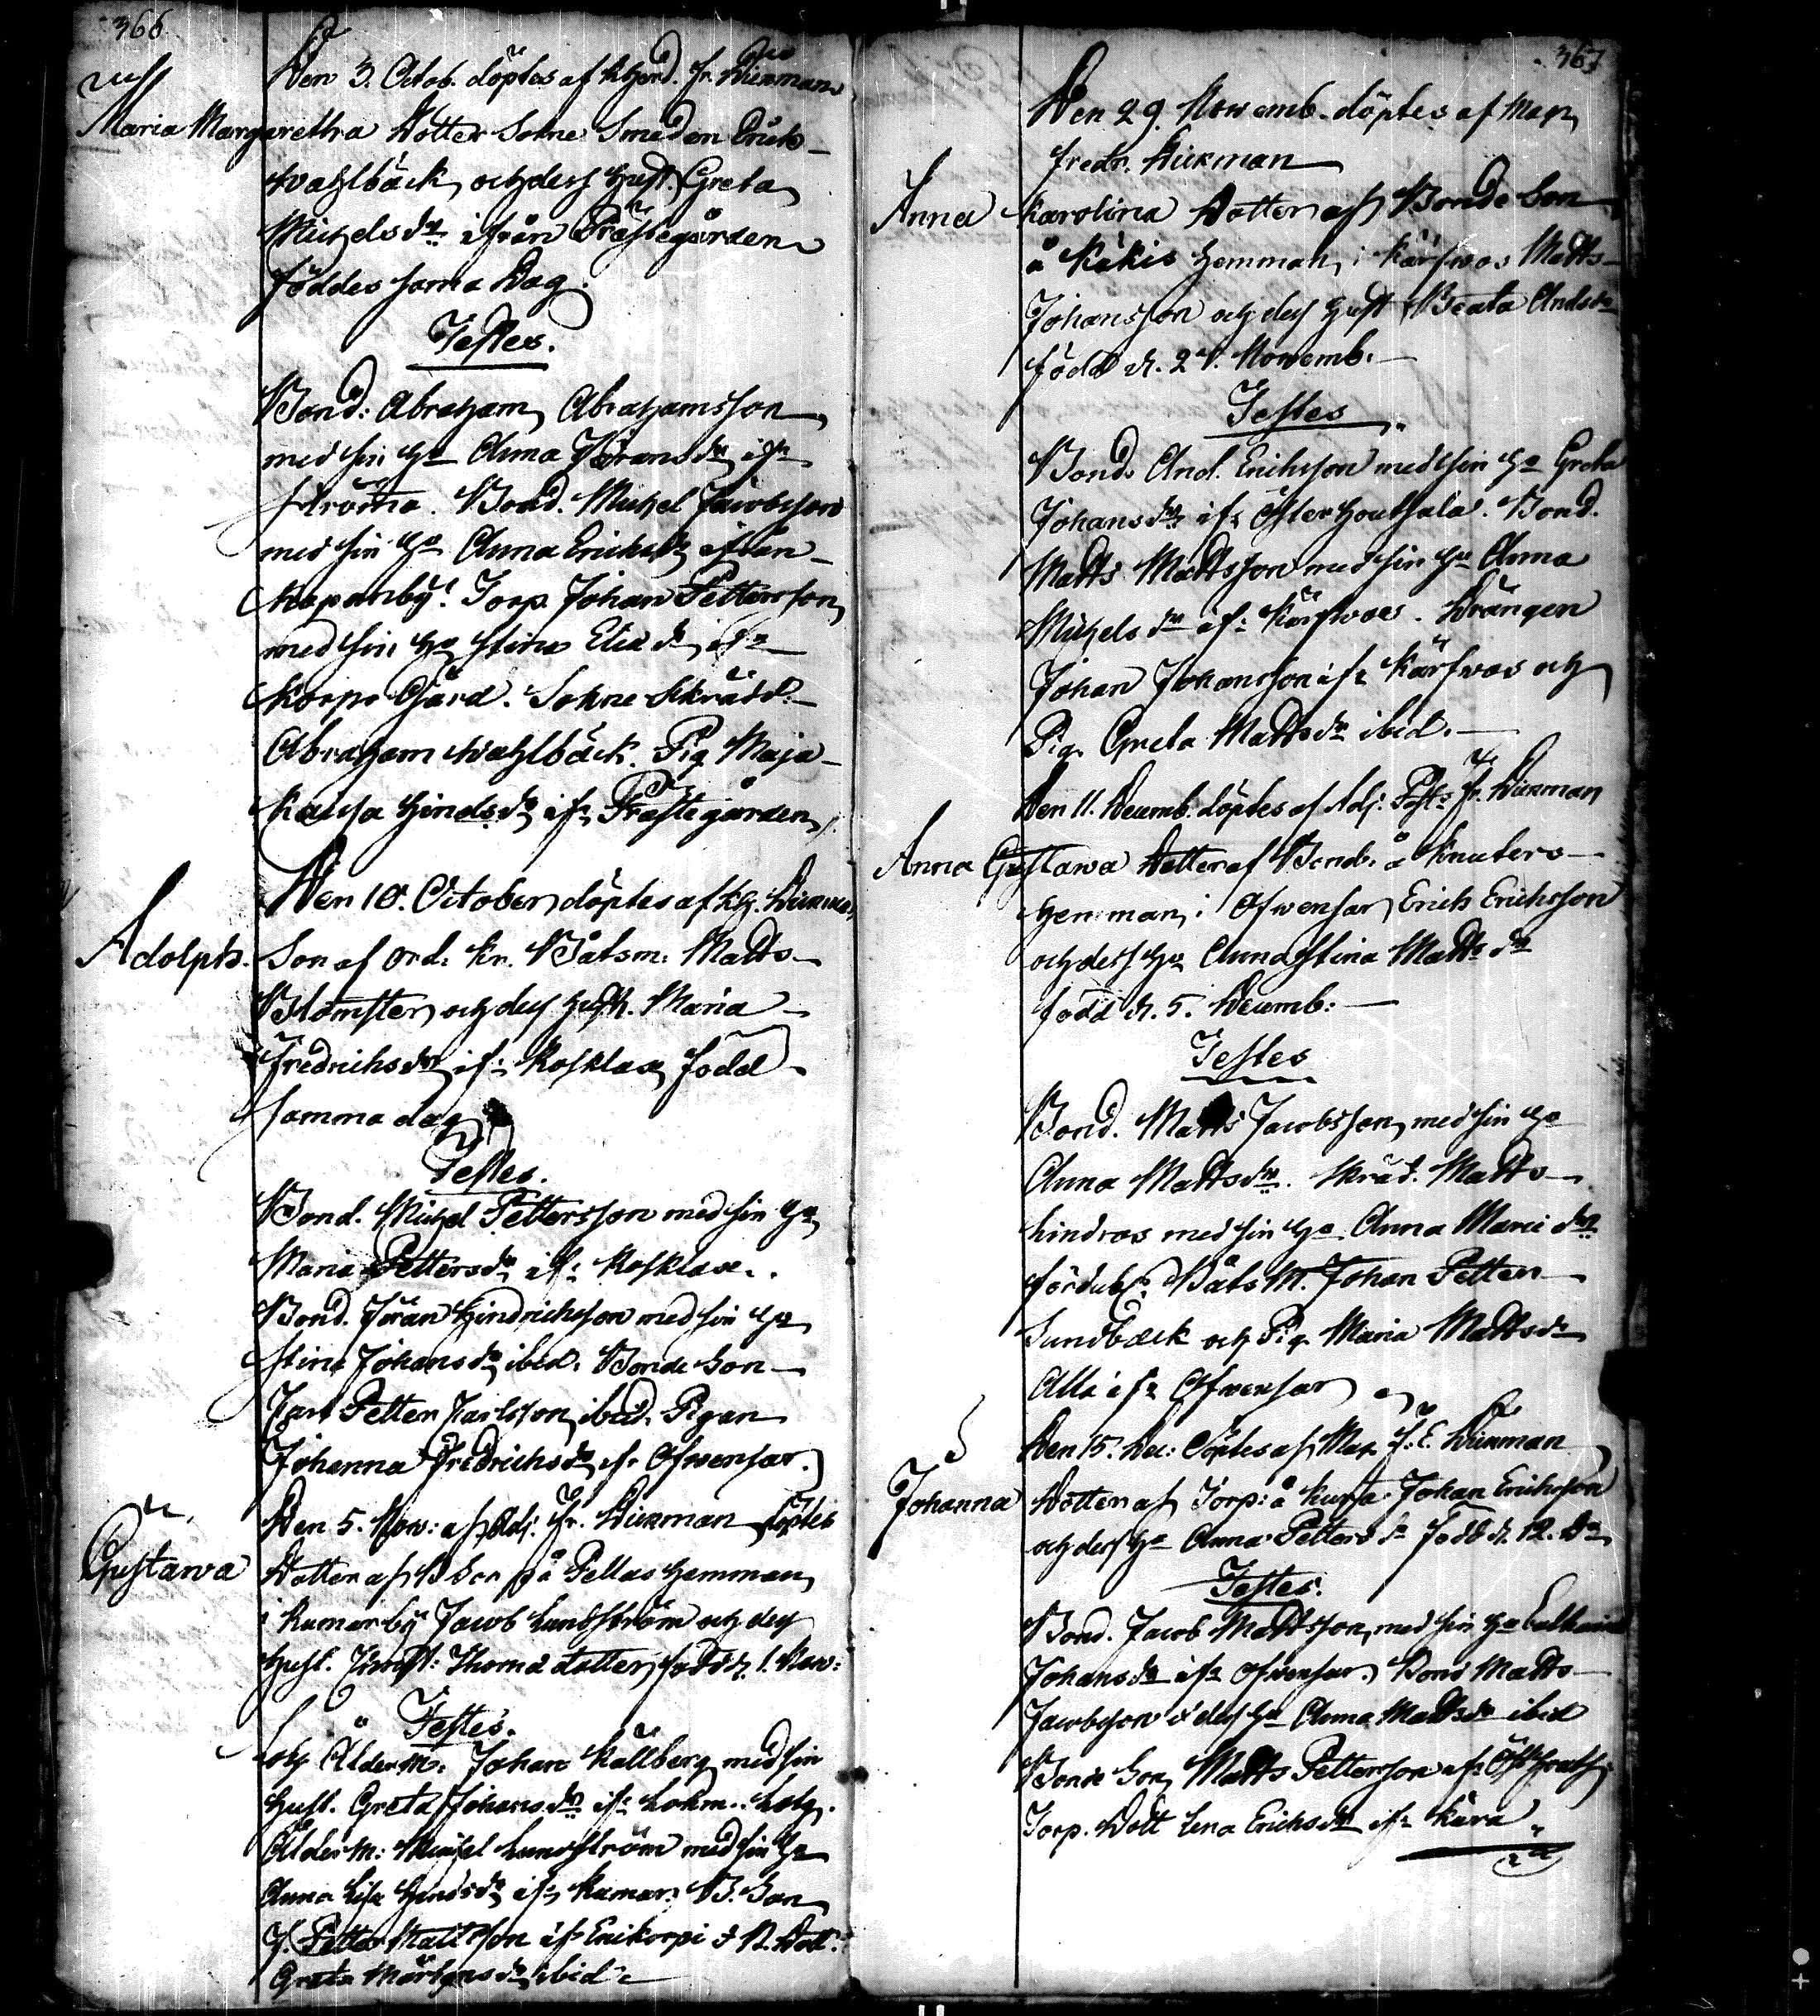 366
Den 3. Octob. döptes af Fr. Dickman
Maria Margaretha Dotter Sokne Smeden Erich
Wahlbäck och dess Hust. Greta
Michelsdr ifrån Prästegården
föddes sama Dag.
Testes.
Bond: Abraham Abrahamsson
med sin Ha Anna Göransdr ifr
Ströma. Bond. Michel Jacobsson
med sin Ha Anna Ericksdr ifrån
by. Torp. Johan Pettersson
med sin Ha Stina Eliædr ifr
Korpo Gård. Sokne Skrädd.
Abraham Wahlbäck. Pig. Maja
Kaisa Hindsdr ifr Prästegården
Den 10. October döptes af Dickman
Adolph. Son af Ord: Kr. Båtsm: Matts
Blomster och dess Hust. Maria
Fredrichsdr ifr Rosklax född
samma dag
Testes.
Bond. Michel Pettersson med sin Ha
Maria Pettersdr ifr Rosklax.
Bond. Jöran Hindrichsson med sin Ha
Stina Johansdr ibid. Bonde Son
Karl Petter Karlsson ibid. Pigan
Johanna Fredrichsdr ifr Ofwensor.
Den 5. Nov: af Adj. Fr. Dickman döptes
Gustava Dotter af B Son på Pellas Hemman
i Rumar by Jacob Lundström och dess
Hust. Thoma dotter född d. 1. Nov:
Testes.
Lots Ålderm. Johan Källberg med sin
Hust. Greta Johansdr ifr Lohm. Lots
Ålderm: Michel Lundström med sin Ha
Anna Lisa Hindsdr ifr Rumar. B. Son
J. Petter Mattsson ifr Enikorpi & B. Dott.
Greta Mårtensdr ibid
367
Den 29. Novemb. döptes af Mag
Fredr. Dickman
Anna Karolina Dotter af Bonde Son
å Käkis Hemman i Kärfwas Matts
Johansson och dess Hust Beata Andsdr
född d. Novemb.
Testes
Bond. And. Erichsson med sin Ha Greta
Johansdr ifr Österhoutsala. Bond.
Matts Mattsson med sin Ha Anna
Michelsdr ifr Kärfwas. Drängen
Johan Johansson ifr Kärfwas och
Pig. Greta Mattsdr ibid.
Den 11. Decemb. döptes af Adj. Past: Fr. Dickman
Anna Gustava Dotter af Bond. å Knuters
Hemman i Ofwensor Erich Erichsson
och dess Ha Anna Stina Mattsdr
född d. 5. Decemb:
Testes
Bond. Matts Jacobsson med sin Ha
Anna Mattsdr. Skräd. Matts
Lindros med sin Ha Anna Mariedr
fördubl: Båts M. Johan Petter
Sundbäck och Pig. Maria Mattsdr
Alla ifr Ofwensor
Den 15. Dec: döptes af Mag. F: E. Dickman
Johanna Dotter af Torp: å Kurja Johan Erichsson
och dess Ha Anna Pettersdr född d. 12. Do
Testes.
Bond. Jacob Mattsson, med sin Ha Catharina
Johansdr ifr Ofwensor. Bond Matts
Jacobsson & dess Ha Anna Mattsdr ibid
Bonde Son Matts Pettersson ifr
Torp. Dott Lena Erichsdr ifr Kära